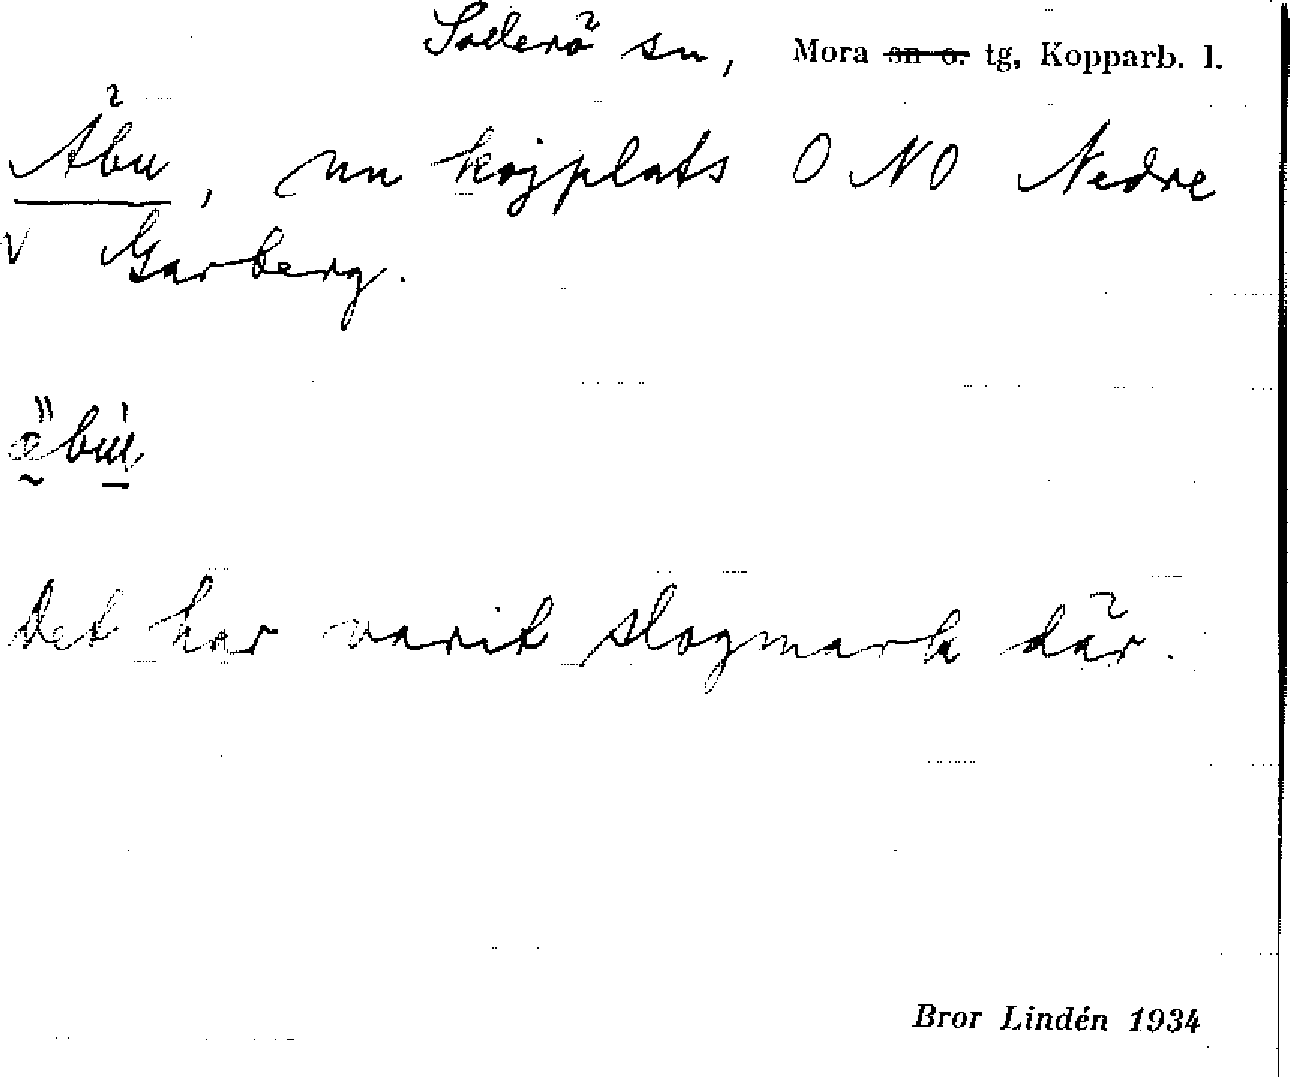 Sollerö sn, Mora sn o. tg, Kopparb. l.
Äbu, nu kojplats ONO Nedre
v Garberg.
Det har varit slogmark där.
Bror Lindén 1934